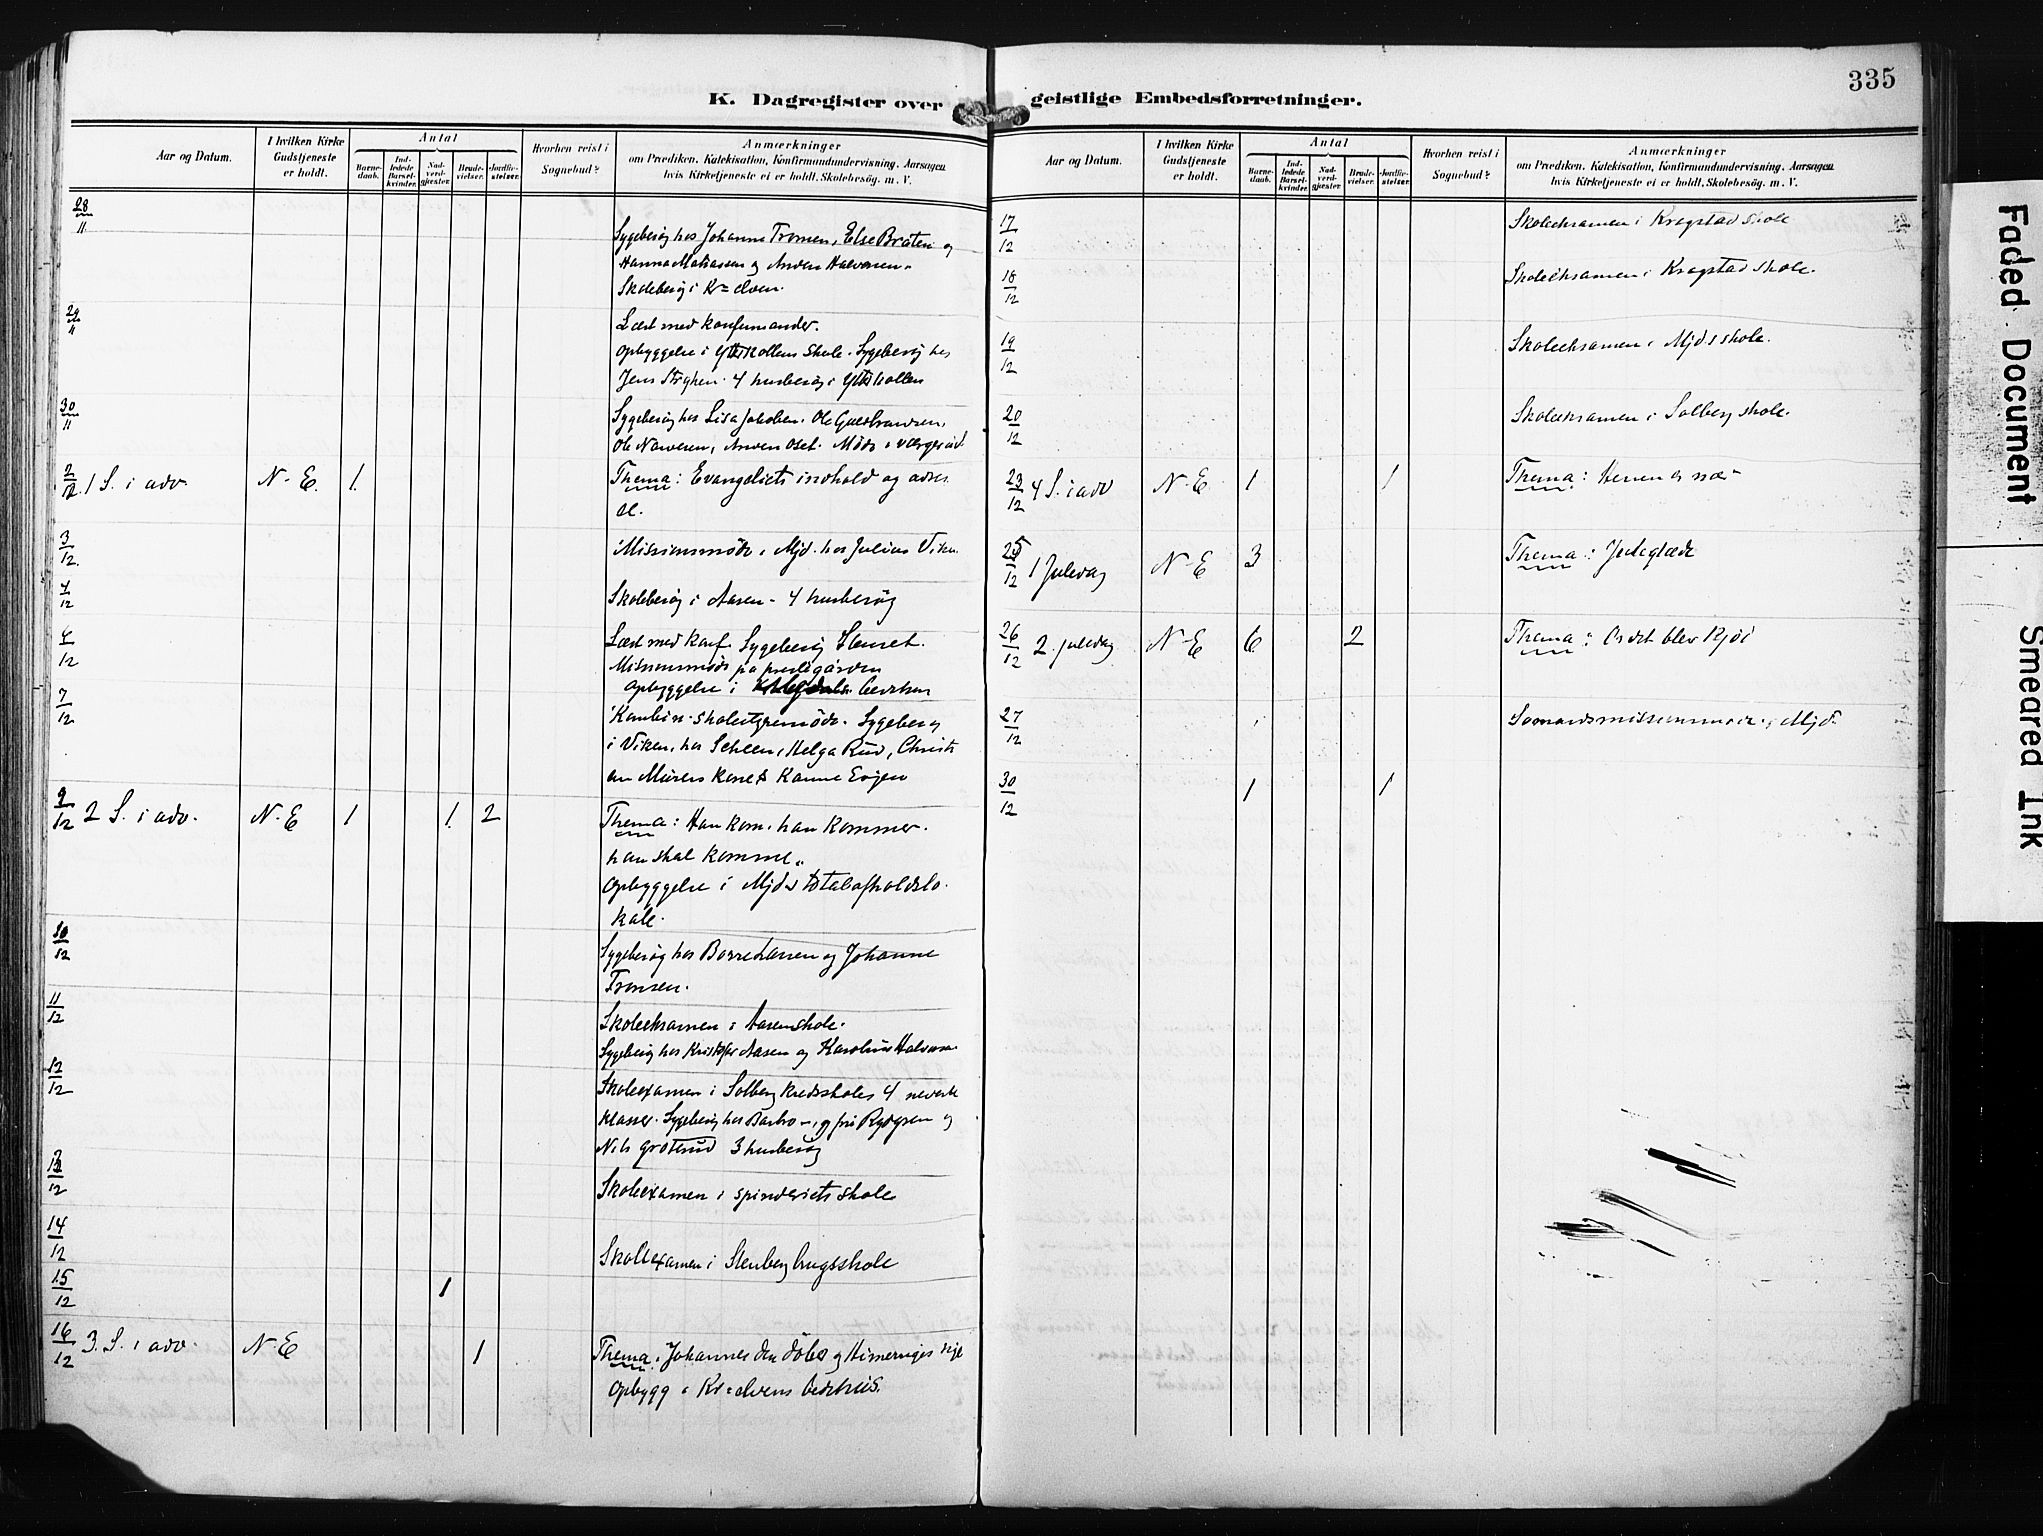 335
K. Dagregister over geistlige Embedsforretninger.
Aar og Datum.
I hvilken Kirke Gudstjeneste er holdt.
Antal
Barne-daab.
Ind-ledede Barsel-kvinder.
Nad-verd-gjæster.
Brude-vielser.
Jordfæ-stelser.
Hvorhen reist i Sognebud?
Anmærkninger
om Prædiken, Katekisation, Konfirmandundervisning, Aarsagen
hvis Kirketjeneste ei er holdt, Skolebesøg. m. V.
28/11
Sygebesøg hos Johanne Tronsen, Else Bråten og
Hanna Mathiassen og Anders Halvorsen.
Skolebesøg i Kr=elven.
29/11
Læst med konfirmander.
Opbyggelse i Ytterkollens skole. Sygebesøg hos
Jens Styhen. 4 husbesøg i Ytterkollen
30/11
Sygebesøg hos Lisa Jakobsen, Ole Gulbrandsen,
Ole Narvesen, Anders Oset. Møde i værgeråd.
2/12 1 S. i adv. N-E. 1.
Thema: Evangeliets indhold og adres
se.
3/12
Missionsmøde i Mjd. hos Julius Viken
4/12
Skolebesøg i Aasen - 4 husbesøg
6/12
Læst med konf. Sygebesøg
Missionsmøde på prestegården
Opbyggelse i
7/12
Kombin. skolestyremøde. Sygebesøg
i Viken, hos Scheen, Helga Rud, Christi
an Mürers kone & Kanne Evjen
9/12 2 S. i adv. N-E 1 1. 2
Thema: Han kom, han kommer.
han skal komme.
Opbyggelse i Mjd.s totalafholdslo-
kale.
10/12
Sygebesøg hos Borre Larsen og Johanne
Tronsen.
11/12
Skoleeksamen i Aasen skole.
Sygebesøg hos Kristoffer Aasen og Karoline Halvorsen
12/12
Skoleexamen i Solberg kredsskoles 4 nederste
klasser. Sygebesøg hos Barbro og frk Rydgren og
Nils Grøterud 3 husbesøg
13/12
Skoleexamen i spinderiets skole
14/12
Skoleexamen i Stenberg brugsskole
15/12 1
16/12 3. S. i adv. N-E 1
Thema: Johannes den døber og Himeriges rige
Opbygg i Kr=elvens bedehus.
Aar og Datum.
I hvilken Kirke Gudstjeneste er holdt.
Antal
Barne-daab.
Ind-ledede Barsel-kvinder.
Nad-verd-gjæster.
Brude-vielser.
Jordfæ-stelser.
Hvorhen reist i Sognebud?
Anmærkninger
om Prædiken, Katekisation, Konfirmandundervisning, Aarsagen
hvis Kirketjeneste ei er holdt, Skolebesøg. m. V.
17/12
Skoleeksamen i Krogstad skole
18/12
Skoleeksamen i Krogstad skole.
19/12
Skoleeksamen i Mjd.s skole.
20/12
Skoleeksamen i Solberg skole.
23/12 4 S. i adv N-E. 1 1
Thema: Herren er nær
25/12 1 Juledag N-E 3
Thema: Juleglæde
26/12 2. juledag N-E 6 2
Thema: Ordet blev kjød
27/12
Sømandsmissionsmøde i Mjd.
30/12 1 1
Faded Document
Smeared Ink